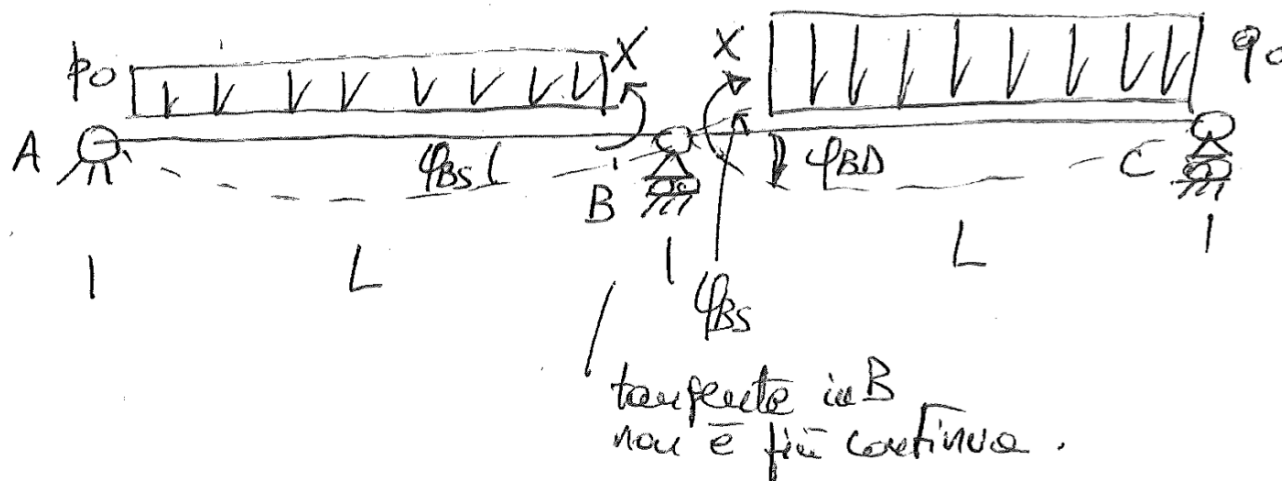 p₀ X X q₀
A φBS B φBD C
L φBS L
tangente in B
non è più continua.